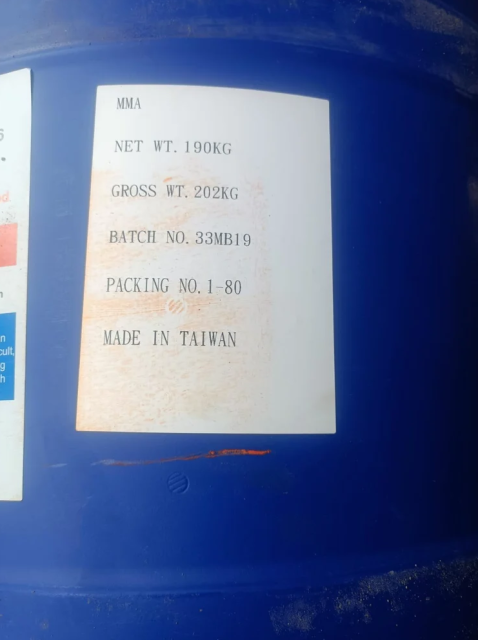 MMA
NET WT. 190KG
GROSS WT. 202KG
BATCH NO. 33MB19
PACKING NO. 1-80
MADE IN TAIWAN